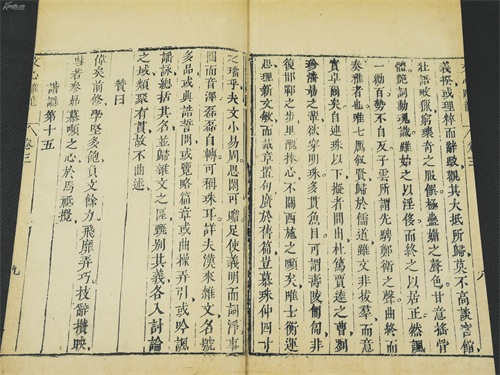 義揆或理粹而辭駁觀其大抵所歸莫不高談宮館
壯語畋獵窮瓌奇之服饌極蠱媚之聲色甘意搖骨
體艶詞動魂識雖始之以淫侈而終之以居正然諷
一勸百勢不自反子雲所謂先騁鄭衛之聲曲終而
奏雅者也唯七厲敘賢歸於儒道雖文非拔羣而意
實卓爾矣自連珠以下擬者間出杜篤賈逵之曹劉
珍潘勗之輩欲穿明珠多貫魚目可謂壽陵匍匐非
復邯鄲之步里醜捧心不關西施之顰矣唯士衡運
思理新文敏而裁章置句廣於舊篇豈慕珠仲四寸
之璫乎夫文小易周思閑可贍足使義明而詞淨事
圓而音澤磊磊自轉可稱珠耳詳夫漢來雜文名號
多品或典誥誓問或覽略篇章或曲操弄引或吟諷
謠詠總括其名並歸雜文之區甄別其義各入討論
之域類聚有貫故不曲述
贊曰
偉矣前修學堅多飽負文餘力飛靡弄巧枝辭攢映
嘒若參昴慕顰之心於焉祗攪
諧讔第十五
文心雕龍 卷三 九